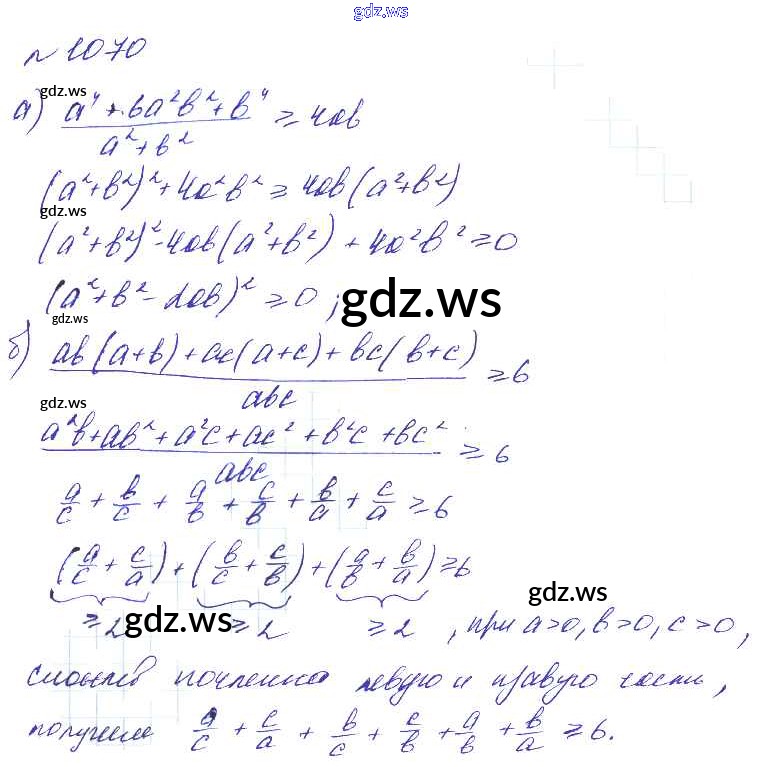 gdz.ws
№ 1070
gdz.ws
а) (a⁴ + 6a²b² + b⁴)/(a² + b²) ≥ 4ab
(a²+b²)² + 4a²b² ≥ 4ab(a²+b²)
gdz.ws
(a²+b²)² - 4ab(a²+b²) + 4a²b² ≥ 0
(a²+b² - 2ab)² ≥ 0;
gdz.ws
gdz.ws
б) (ab(a+b) + ac(a+c) + bc(b+c))/abc ≥ 6
gdz.ws
(a²b + ab² + a²c + ac² + b²c + bc²)/abc ≥ 6
a/c + b/c + a/b + c/b + b/a + c/a ≥ 6
(a/c + c/a) + (b/c + c/b) + (a/b + b/a) ≥ 6
gdz.ws
≥ 2 ≥ 2 ≥ 2, при a>0, b>0, c>0,
gdz.ws
gdz.ws
сложив почленно левую и правую части,
получим a/c + c/a + b/c + c/b + a/b + b/a ≥ 6.